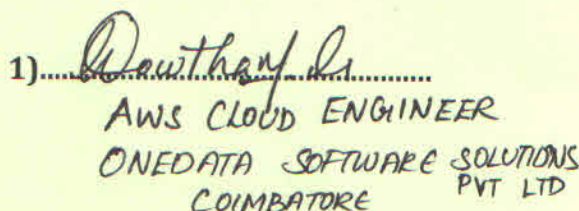 1)....................
AWS CLOUD ENGINEER
ONEDATA SOFTWARE SOLUTIONS
PVT LTD
COIMBATORE